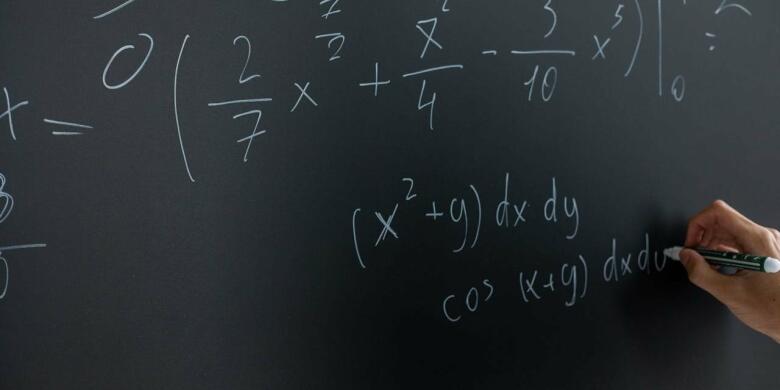 x = 0 (2/7 x^(7/2) + x^2/4 - 3/10 x^5)|_0 =
(x² + y) dx dy
cos (x+y) dx d